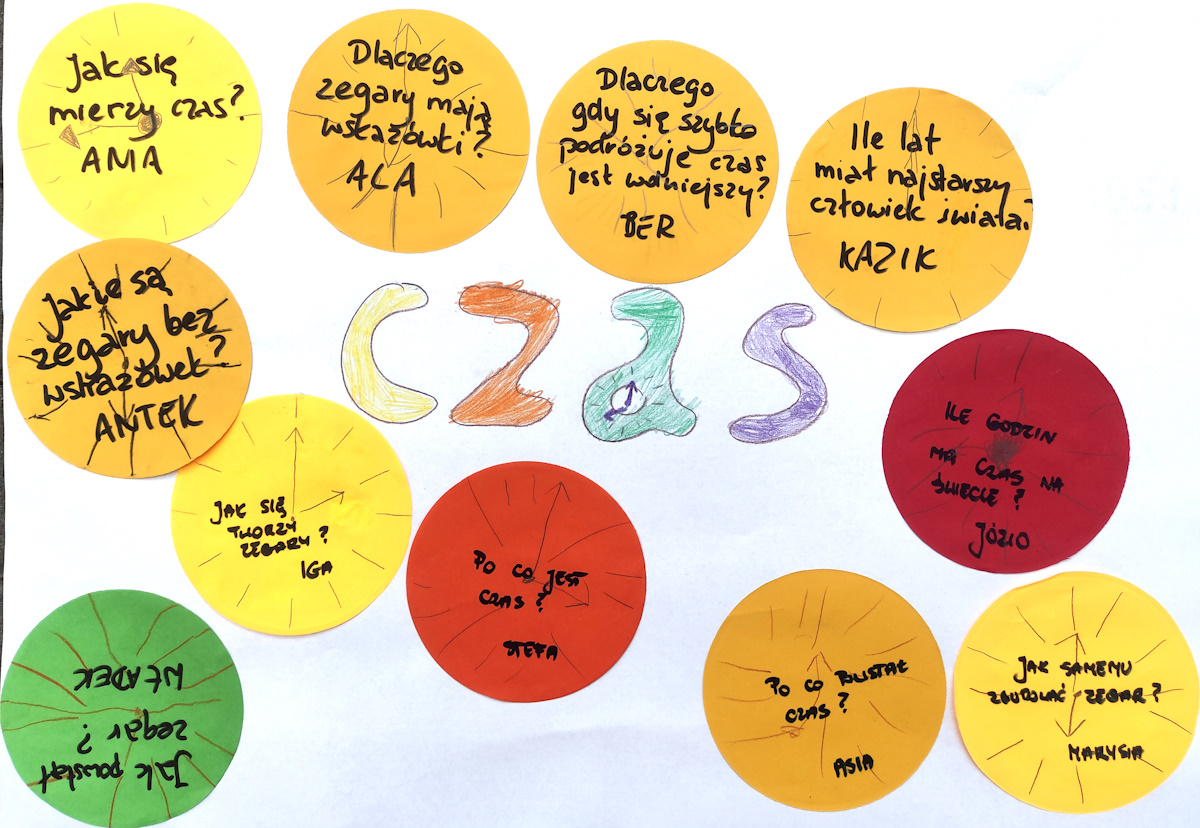 Jak się
mierzy czas?
AMA
Dlaczego
zegary mają
wskazówki?
ALA
Dlaczego
gdy się szybko
podróżuje czas
jest wolniejszy?
BER
Ile lat
miał najstarszy
człowiek świata?
KAZIK
Jakie są
zegary bez
wskazówek?
ANTEK
CZAS
ILE GODZIN
MA CZAS NA
ŚWIECIE?
JÓZIO
JAK SIĘ
TWORZY
ZEGARY?
IGA
PO CO JEST
CZAS?
STEFA
Jak powstał
zegar?
WŁADEK
PO CO
CZAS?
ASIA
JAK SAMEMU
ZBUDOWAĆ ZEGAR?
MARYSIA